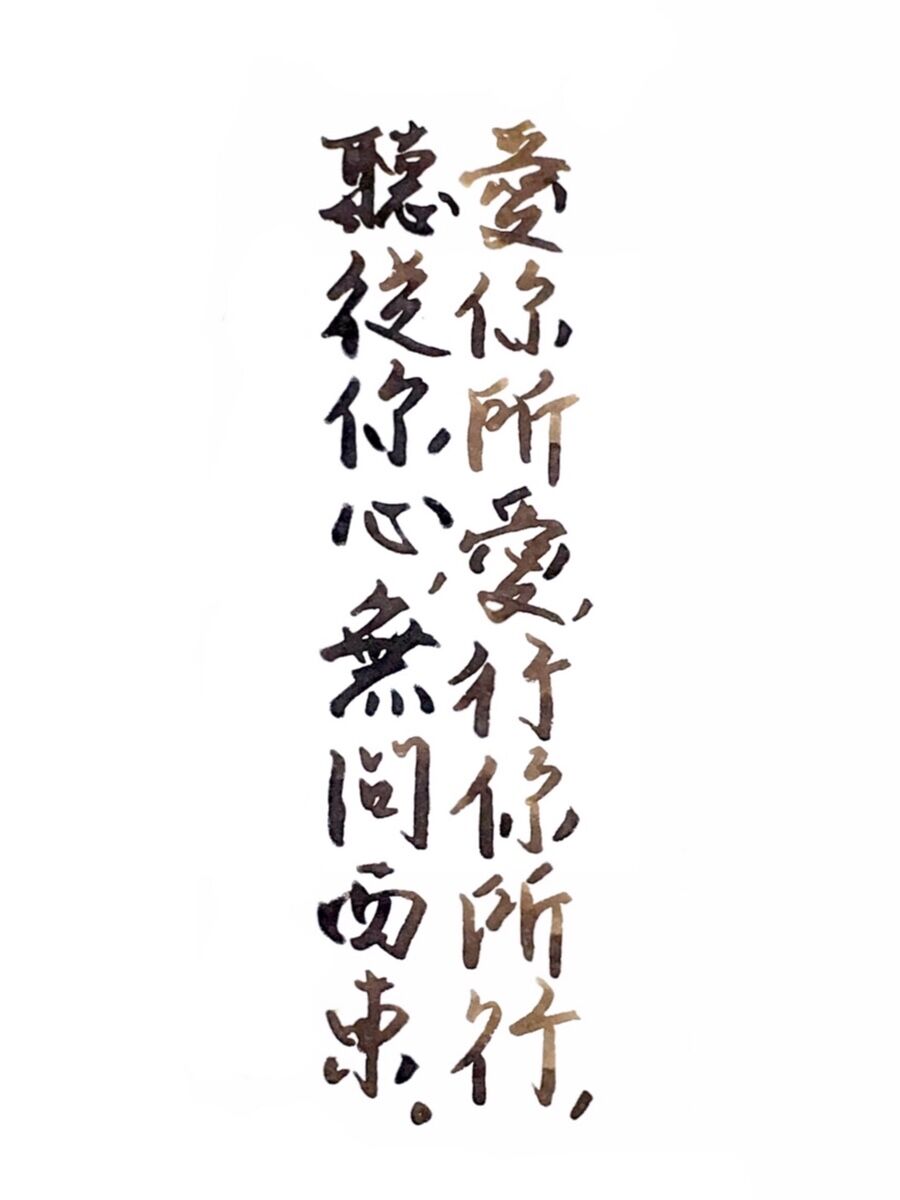 愛你所愛，行你所行，
聽從你心，無問西東。